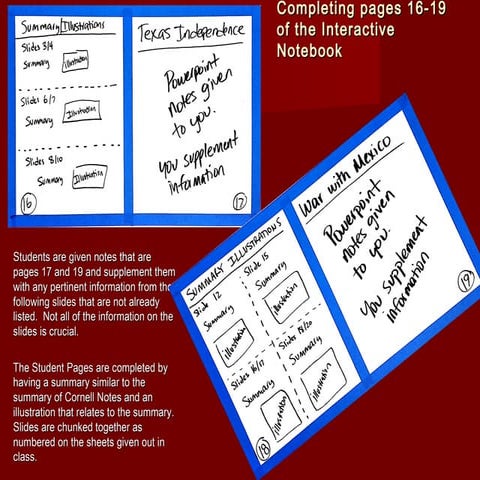 Completing pages 16-19
of the Interactive
Notebook
Summary Illustrations
Slides 3/4
Summary
Illustration
Slides 6/7
Summary
Illustration
Slides 8/10
Summary
Illustration
16
Texas Independence
Powerpoint
notes given
to you.
You supplement
information
17
SUMMARY ILLUSTRATIONS
Slide 12
Summary
illustration
Slide 15
Summary
illustration
Slides 16/17
Summary
illustration
Slides 18/20
Summary
illustration
18
War with Mexico
Powerpoint
notes given
to you.
You supplement
information
19
Students are given notes that are
pages 17 and 19 and supplement them
with any pertinent information from the
following slides that are not already
listed.  Not all of the information on the
slides is crucial.
The Student Pages are completed by
having a summary similar to the
summary of Cornell Notes and an
illustration that relates to the summary.
Slides are chunked together as
numbered on the sheets given out in
class.